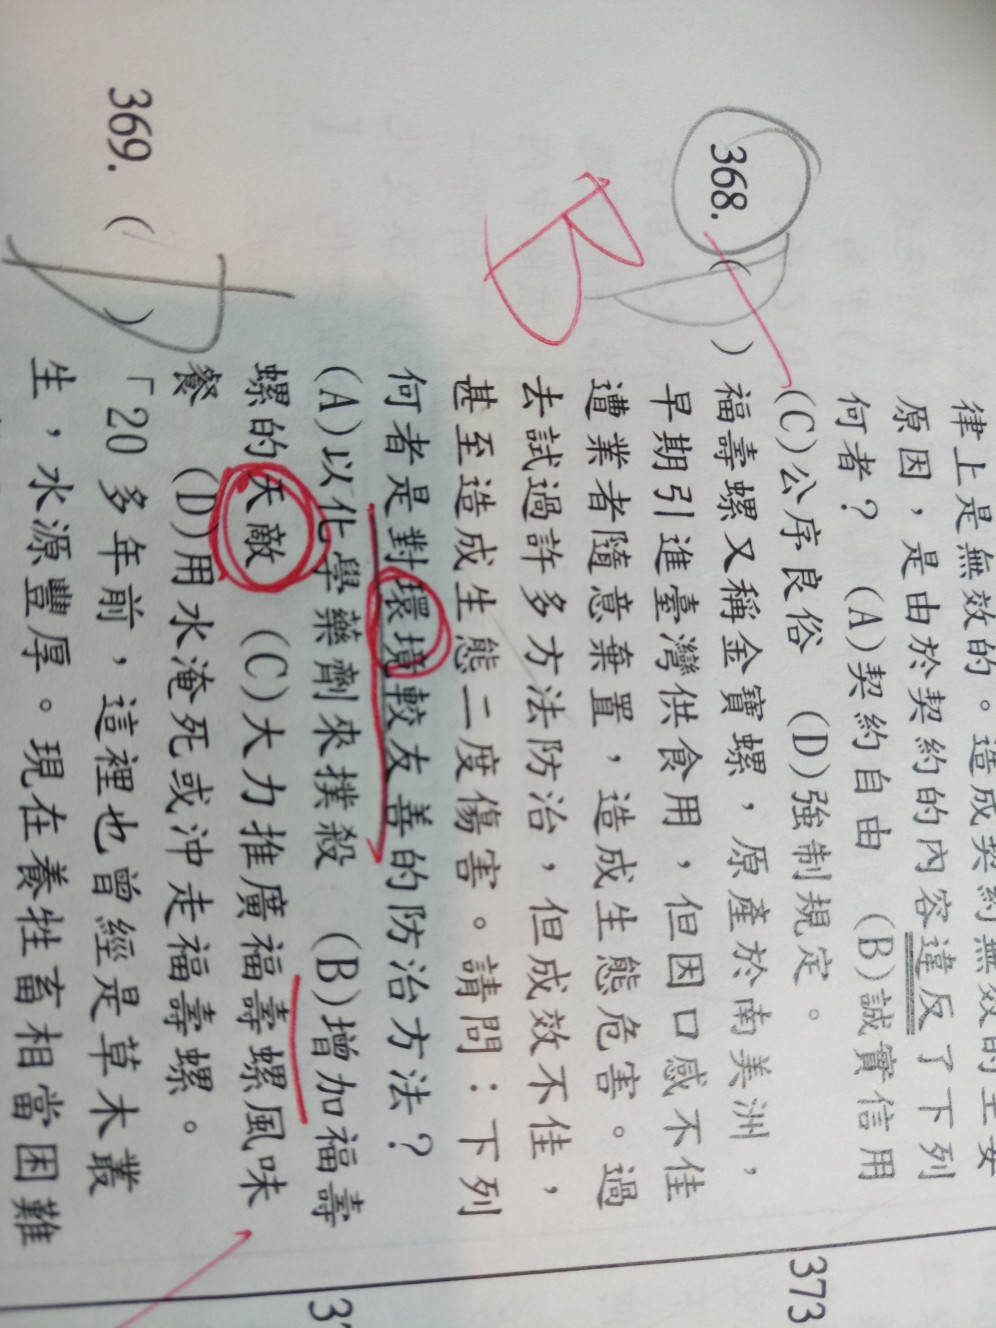 律上是無效的。造成契約無效的主要
原因，是由於契約的內容違反了下列
何者？ (A)契約自由 (B)誠實信用
(C)公序良俗 (D)強制規定。
368. ( D ) 福壽螺又稱金寶螺，原產於南美洲，
B
早期引進臺灣供食用，但因口感不佳
遭業者隨意棄置，造成生態危害。過
去試過許多方法防治，但成效不佳，
甚至造成生態二度傷害。請問：下列
何者是對環境較友善的防治方法？
(A)以化學藥劑來撲殺 (B)增加福壽
螺的天敵 (C)大力推廣福壽螺風味
餐 (D)用水淹死或沖走福壽螺。
369. ( ) 「20 多年前，這裡也曾經是草木叢
生，水源豐厚。現在養牲畜相當困難
373